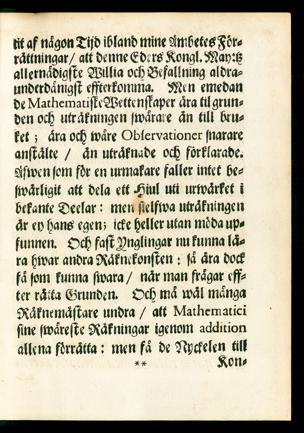 tit af någon Tijd ibland mine Ambetes För-
rättningar/ att denne Eders Kongl. May:tz
allernådigste Willia och Befallning aldra-
underdånigst effterkomma. Men emedan
de Mathematiske Wettenskaper åra til grun-
den och uträkningen swårare än till bru-
ket; åra och wåre Observationer snarare
anstälte / än uträknade och förklarade.
Åfwen som för en urmakare faller intet be-
swärligit att dela ett Hiul uti urwårket i
bekante Deelar: men sielfwa uträkningen
år ey hans egen; icke heller utan möda up-
funnen. Och fast Ynglingar nu kunna lä-
ra hwar andra Räknekonsten: så åra dock
få som kunna swara/ når man frågar eff-
ter rätta Grunden. Och må wål många
Räknemåstare undra/ att Mathematici
sine swåreste Räkningar igenom addition
allena förrätta: men få de Nyckelen till
** Kon-